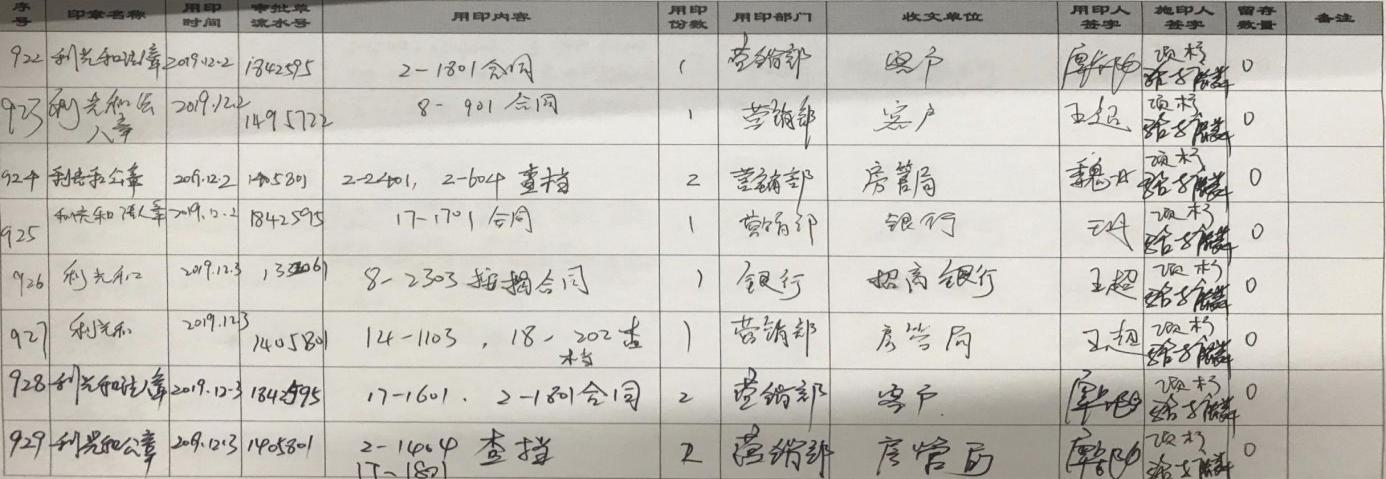 序号 印章名称 用印时间 审批单流水号 用印内容 用印份数 用印部门 收文单位 用印人签字 施印人签字 留存数量 备注
922 利光和法人章 2019.12.2 1842595 2-1801合同 1 营销部 客户 项杉 0
923 利光和法人章 2019.12.2 1495722 8-901合同 1 营销部 客户 王超 项杉 0
924 利光和公章 2019.12.2 1405801 2-2401, 2-604 查档 2 营销部 房管局 魏 项杉 0
925 利光和法人章 2019.12.2 1842595 17-1701合同 1 营销部 银行 项杉 0
926 利光和 2019.12.3 8-2303 按揭合同 1 银行 招商银行 王超 项杉 0
927 利光和 2019.12.3 1405801 14-1103, 18-202查档 1 营销部 房管局 王超 项杉 0
928 利光和法人章 2019.12.3 1842595 17-1601. 2-1801合同 2 营销部 客户 项杉 0
929 利光和公章 2019.12.3 1405801 2-1404 查档 2 营销部 房管局 项杉 0
17-1801